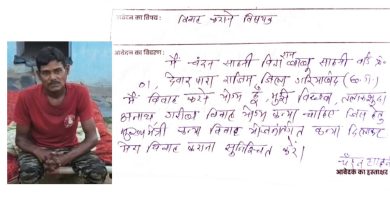 आवेदन का विषय: विवाह कराने विषयक
आवेदन का विवरण:
मैं चंदन साहनी पिता राम साहनी वार्ड क्रं.
01, देवार पारा राजिम, जिला गरियाबंद (छ.ग.)
मैं विवाह करने योग्य हूँ, मुझे विधवा, तलाकशुदा
अनाथ, गरीब विवाह योग्य कन्या चाहिए जिस हेतु
मुख्यमंत्री कन्या विवाह योजनांतर्गत कन्या दिलाकर
मेरा विवाह कराना सुनिश्चित करें।
चंदन साहनी
आवेदक का हस्ताक्षर